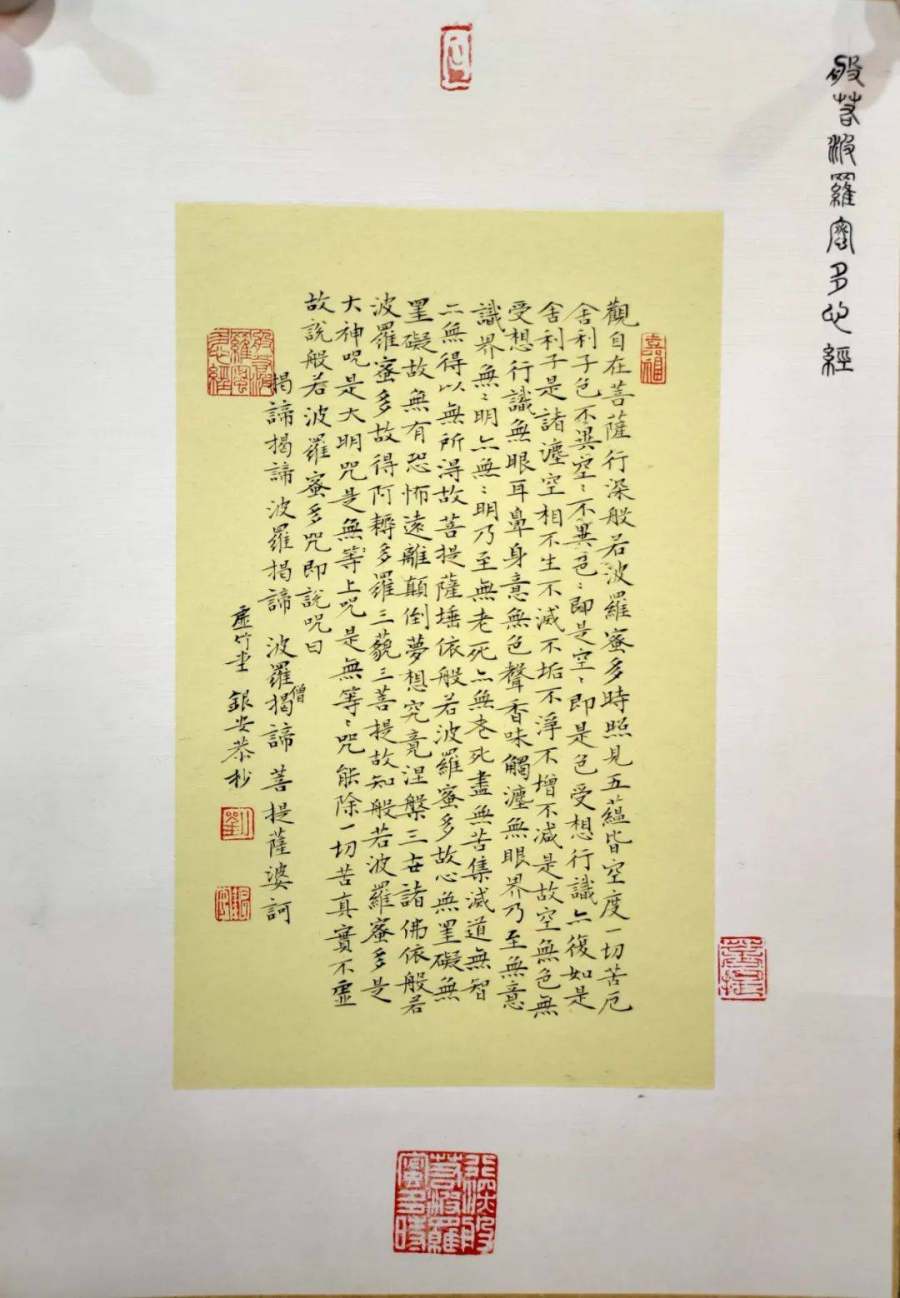 般若波羅蜜多心經
觀自在菩薩行深般若波羅蜜多時照見五蘊皆空度一切苦厄
舍利子色不異空〻不異色〻即是空〻即是色受想行識亦復如是
舍利子是諸灋空相不生不滅不垢不淨不增不減是故空無色無
受想行識無眼耳鼻身意無色聲香味觸灋無眼界乃至無意
識界無〻明亦無〻明乃至無老死亦無老死盡無苦集滅道無智
二無得以無所淂故菩提薩埵依般若波羅蜜多故心無罣礙無
罣礙故無有恐怖遠離顛倒夢想究竟涅槃三世諸佛依般若
波羅蜜多故得阿耨多羅三藐三菩提故知般若波羅蜜多是
大神咒是大明咒是無等上咒是無等〻咒能除一切苦真實不虛
故說般若波羅蜜多咒即說咒曰
揭諦揭諦波羅揭諦 波羅僧揭諦 菩提薩婆訶
虛竹堂 銀安恭抄
劉